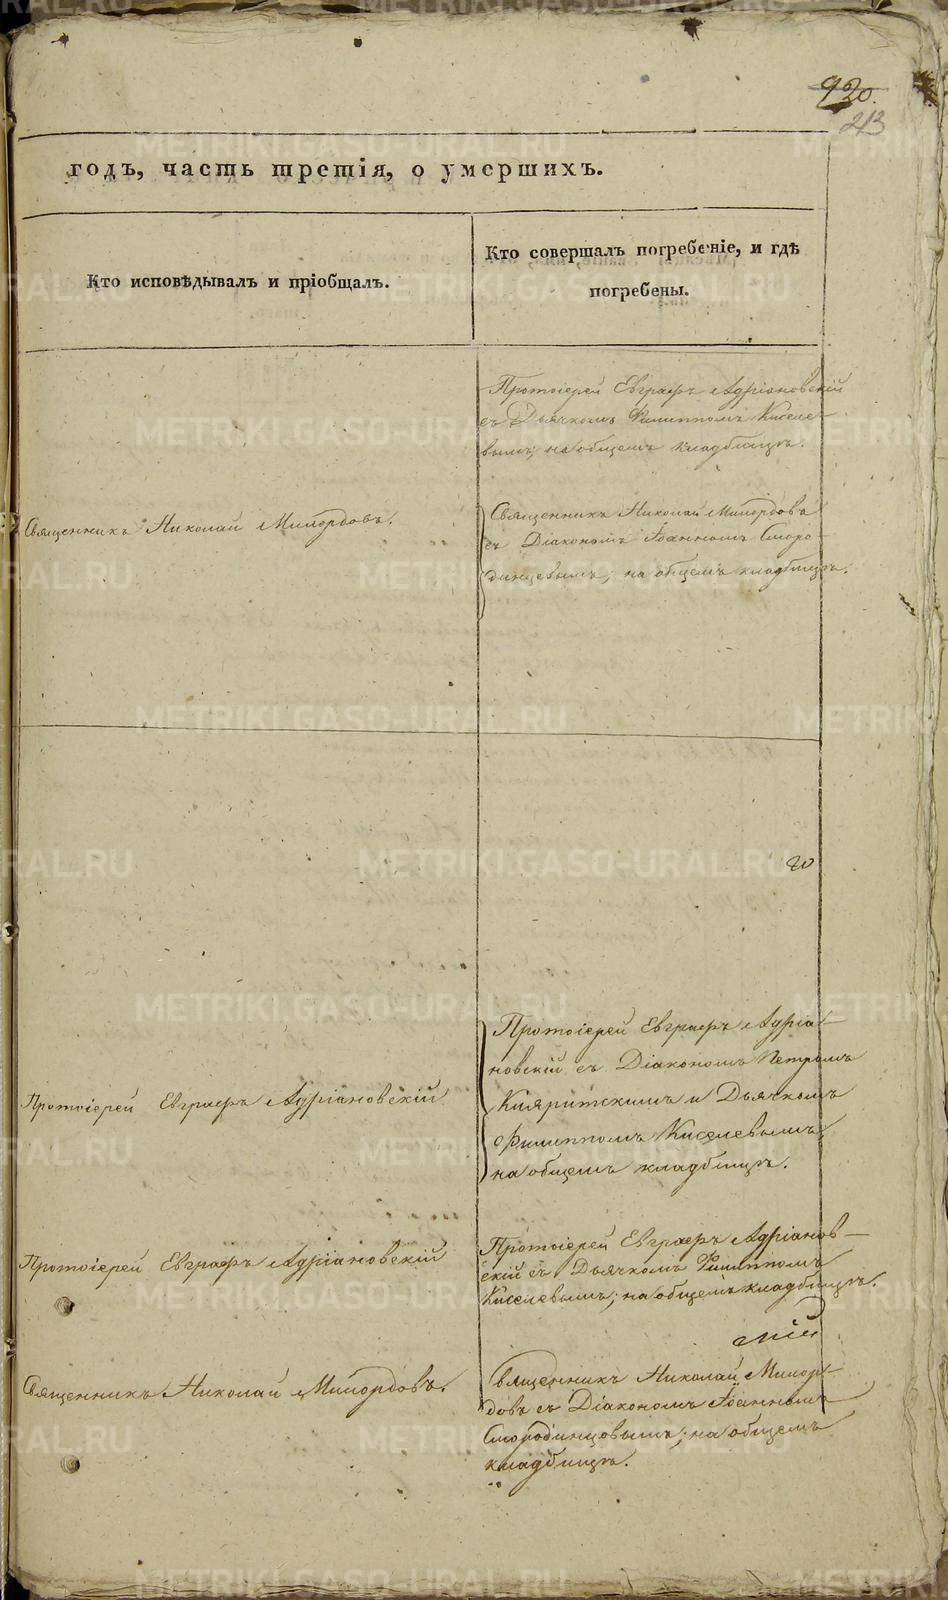 920.
213
годъ, часть третія, о умершихъ.
Кто исповѣдывалъ и пріобщалъ.
Кто совершалъ погребеніе, и гдѣ
погребены.
Протоіерей Евграфъ Адріановскій
съ Дьячкомъ Филиппомъ Киселе-
вымъ; на общемъ кладбищѣ.
Священникъ Николай Милордовъ.
Священникъ Николай Милордовъ
съ Діакономъ Іоанномъ Сморо-
динцевымъ; на общемъ кладбищѣ.
Протоіерей Евграфъ Адріановскій
Протоіерей Евграфъ Адріа-
новскій съ Діакономъ Петромъ
и Дьячкомъ
Филиппомъ Киселевымъ,
на общемъ кладбищѣ.
Протоіерей Евграфъ Адріановскій
Протоіерей Евграфъ Адріанов-
скій съ Дьячкомъ Филиппомъ
Киселевымъ; на общемъ кладбищѣ.
Священникъ Николай Милордовъ.
Священникъ Николай Милор-
довъ съ Діакономъ Іоанномъ
Смородинцовымъ; на общемъ
кладбищѣ.
METRIKI.GASO-URAL.RU